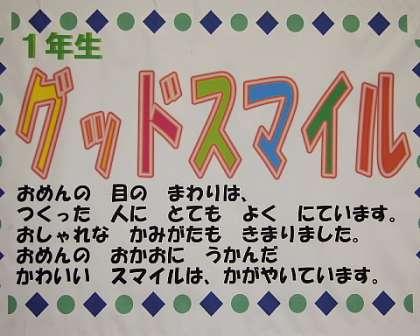 1年生
グッドスマイル
おめんの 目の まわりは、
つくった 人に とても よく にています。
おしゃれな かみがたも きまりました。
おめんの おかおに うかんだ
かわいい スマイルは、かがやいています。